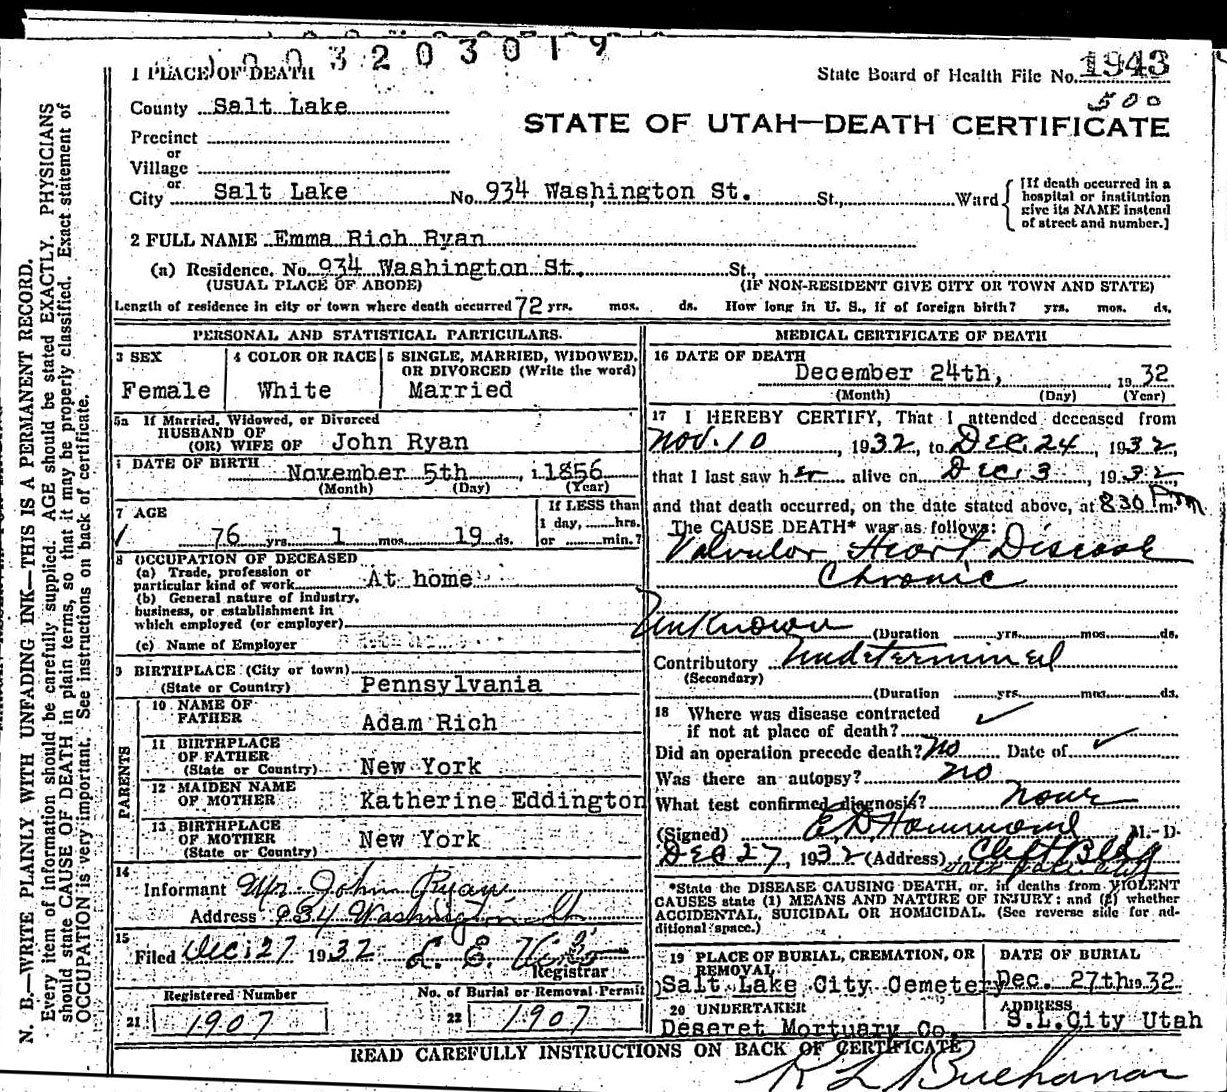 0 0 3 2 0 3 0 1 9
1 PLACE OF DEATH
State Board of Health File No. 1943
500
County Salt Lake
STATE OF UTAH—DEATH CERTIFICATE
Precinct
or
Village
or
City Salt Lake No. 934 Washington St. St., Ward
[If death occurred in a hospital or institution give its NAME instead of street and number.]
2 FULL NAME Emma Rich Ryan
(a) Residence. No. 934 Washington St. St.,
(USUAL PLACE OF ABODE) (IF NON-RESIDENT GIVE CITY OR TOWN AND STATE)
Length of residence in city or town where death occurred 72 yrs. mos. ds. How long in U. S., if of foreign birth? yrs. mos. ds.
PERSONAL AND STATISTICAL PARTICULARS.
3 SEX
Female
4 COLOR OR RACE
White
5 SINGLE, MARRIED, WIDOWED,
OR DIVORCED (Write the word)
Married
5a If Married, Widowed, or Divorced
HUSBAND OF
(OR) WIFE OF John Ryan
DATE OF BIRTH November 5th, 1856
(Month) (Day) (Year)
7 AGE
76 yrs. 1 mos. 19 ds.
If LESS than
1 day, hrs.
or min.?
8 OCCUPATION OF DECEASED
(a) Trade, profession or
particular kind of work At home
(b) General nature of industry,
business, or establishment in
which employed (or employer)
(c) Name of Employer
9 BIRTHPLACE (City or town)
(State or Country) Pennsylvania
PARENTS
10 NAME OF
FATHER Adam Rich
11 BIRTHPLACE
OF FATHER
(State or Country) New York
12 MAIDEN NAME
OF MOTHER Katherine Eddington
13 BIRTHPLACE
OF MOTHER
(State or Country) New York
14
Informant Mr John Ryan
Address 934 Washington St
15
Filed Dec. 27 1932 L. E.
Registrar
Registered Number
21 1907
No. of Burial or Removal Permit
22 1907
MEDICAL CERTIFICATE OF DEATH
16 DATE OF DEATH
December 24th, 1932
(Month) (Day) (Year)
17 I HEREBY CERTIFY, That I attended deceased from
Nov. 10, 1932, to Dec. 24, 1932,
that I last saw her alive on Dec. 3, 1932,
and that death occurred, on the date stated above, at 830 Pm
The CAUSE DEATH* was as follows:
Valvular Heart Disease
Chronic
Unknown (Duration yrs. mos. ds.
Contributory Undetermined
(Secondary)
(Duration yrs. mos. ds.
18 Where was disease contracted
if not at place of death? ✓
Did an operation precede death? No Date of ✓
Was there an autopsy? no
What test confirmed diagnosis? none
(Signed) E D Hammond M. D.
Dec 27, 1932 (Address) Clift Bldg
Salt Lake City
*State the DISEASE CAUSING DEATH, or, in deaths from VIOLENT
CAUSES state (1) MEANS AND NATURE OF INJURY: and (2) whether
ACCIDENTAL, SUICIDAL OR HOMICIDAL. (See reverse side for ad-
ditional space.)
19 PLACE OF BURIAL, CREMATION, OR
REMOVAL
Salt Lake City Cemetery
DATE OF BURIAL
Dec. 27th 1932.
20 UNDERTAKER
Deseret Mortuary Co.
ADDRESS
S.L.City Utah
READ CAREFULLY INSTRUCTIONS ON BACK OF CERTIFICATE
R L Buchanan
N. B.—WRITE PLAINLY WITH UNFADING INK—THIS IS A PERMANENT RECORD.
Every item of information should be carefully supplied. AGE should be stated EXACTLY. PHYSICIANS
should state CAUSE OF DEATH in plain terms, so that it may be properly classified. Exact statement of
OCCUPATION is very important. See instructions on back of certificate.